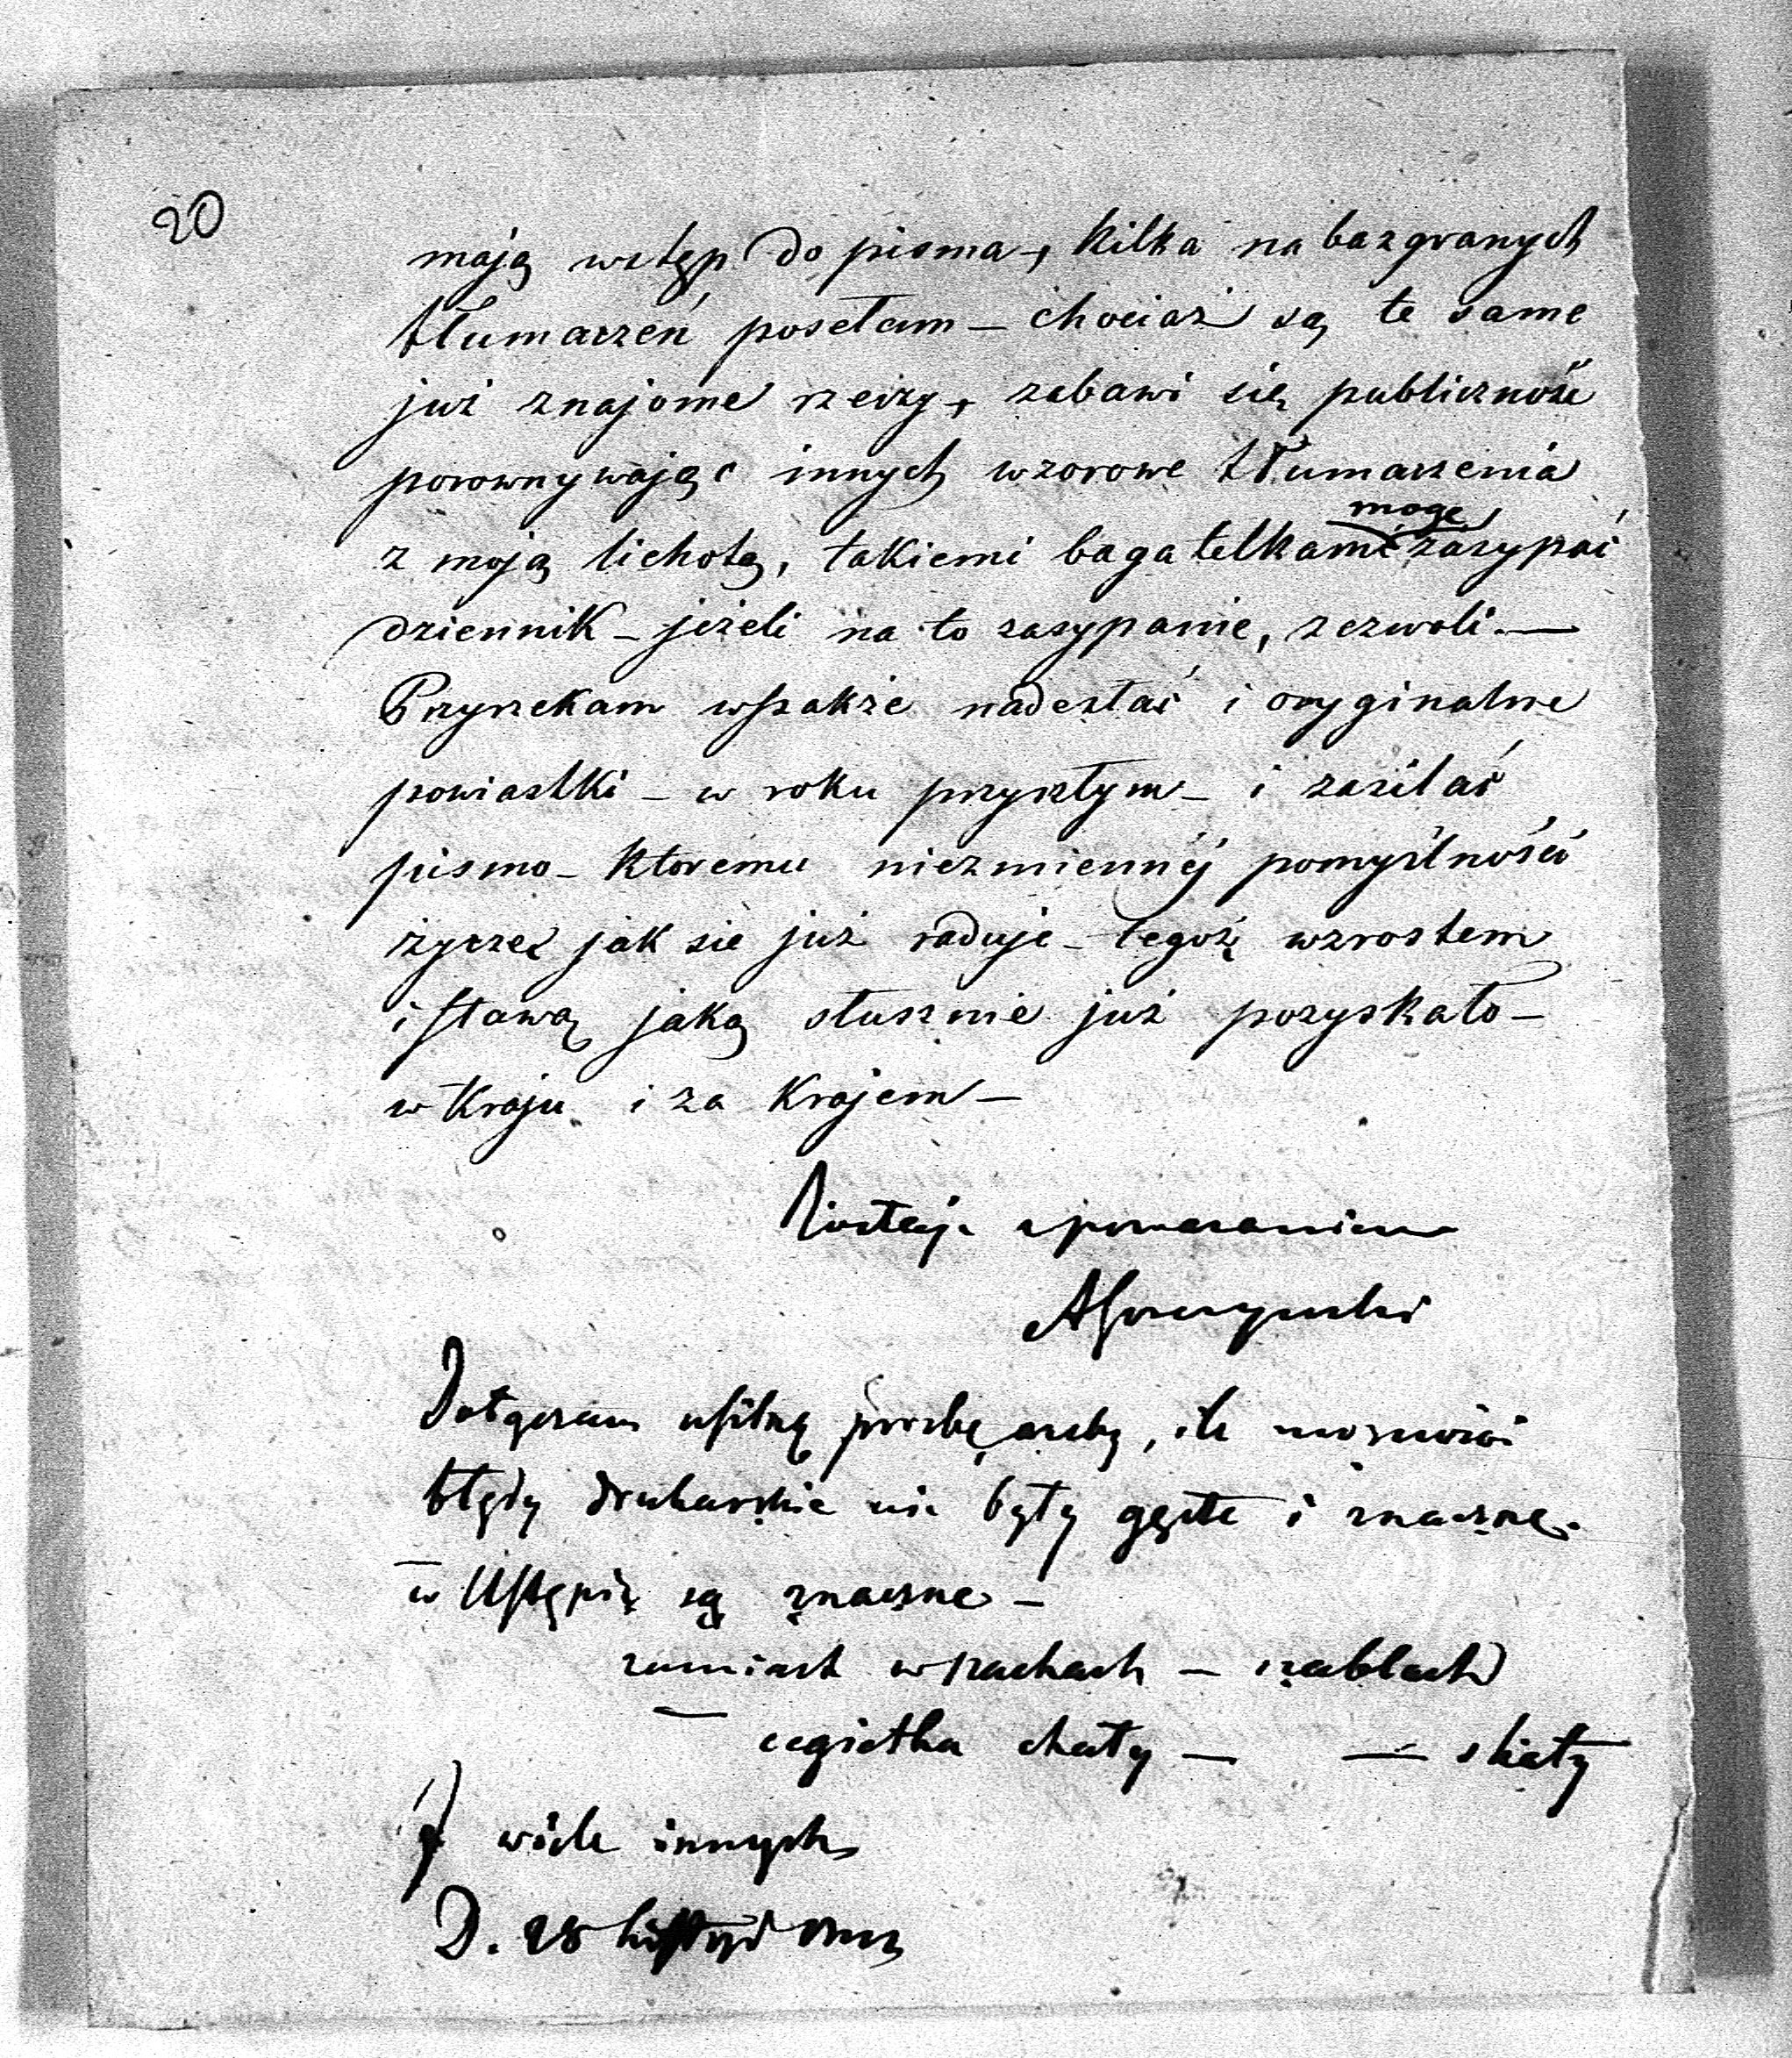 20
mają wstęp do pisma, kilka nabazgranych
tłumaczeń posełam — chociaż są te same
już znajome rzeczy, zabawi się publiczność
porownywając innych wzorowe tłumaczenia
z moją lichotą, takiemi bagatelkami mogę zasypać
dziennik — jeżeli na to zasypanie, zezwoli. —
Przyrzekam wszakże nadesłać i oryginalne
powiastki — w roku przyszłym — i zasilać
pismo — ktoremu niezmiennéj pomyślności
życzę jak się już raduje — tegoż wzrostem
i sławą jaką słusznie już pozyskało —
w kraju i za krajem —
Zostaję z poważaniem
Dołączam usilną prośbę ażeby, ile możności
błędy drukarskie nie były gęste i znaczne.
w Ustępie są znaczne —
zamiast w szachach — szablach
— cegiełka chaty — — skały
i wiele innych
D. 28